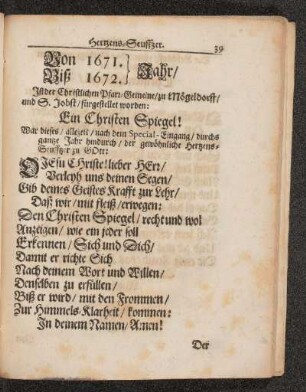 Hertzens-Seuffzer. 39
Von 1671. } Jahr /
Biß 1672.
Ist der Christlichen Pfarr-Gemeine / zu Mögeldorff /
und S. Jobst / fürgestellet worden:
Ein Christen Spiegel!
War dieses / allezeit / nach dem Special-Eingang / durchs
gantze Jahr hindurch / der gewöhnliche Hertzens-
Seufftzer zu GOtt:
O JEsu Christe! lieber HErr /
Verleyh uns deinen Segen /
Gib deines Geistes Krafft zur Lehr /
Daß wir / mit fleiß / erwegen:
Den Christen Spiegel / recht und wol
Anzeigen / wie ein jeder soll
Erkennen / Sich und Dich /
Damit er richte Sich
Nach deinem Wort und Willen /
Denselben zu erfüllen /
Biß er wird / mit den Frommen /
Zur Himmels-Klarheit / kommen:
In deinem Namen / Amen!
Der